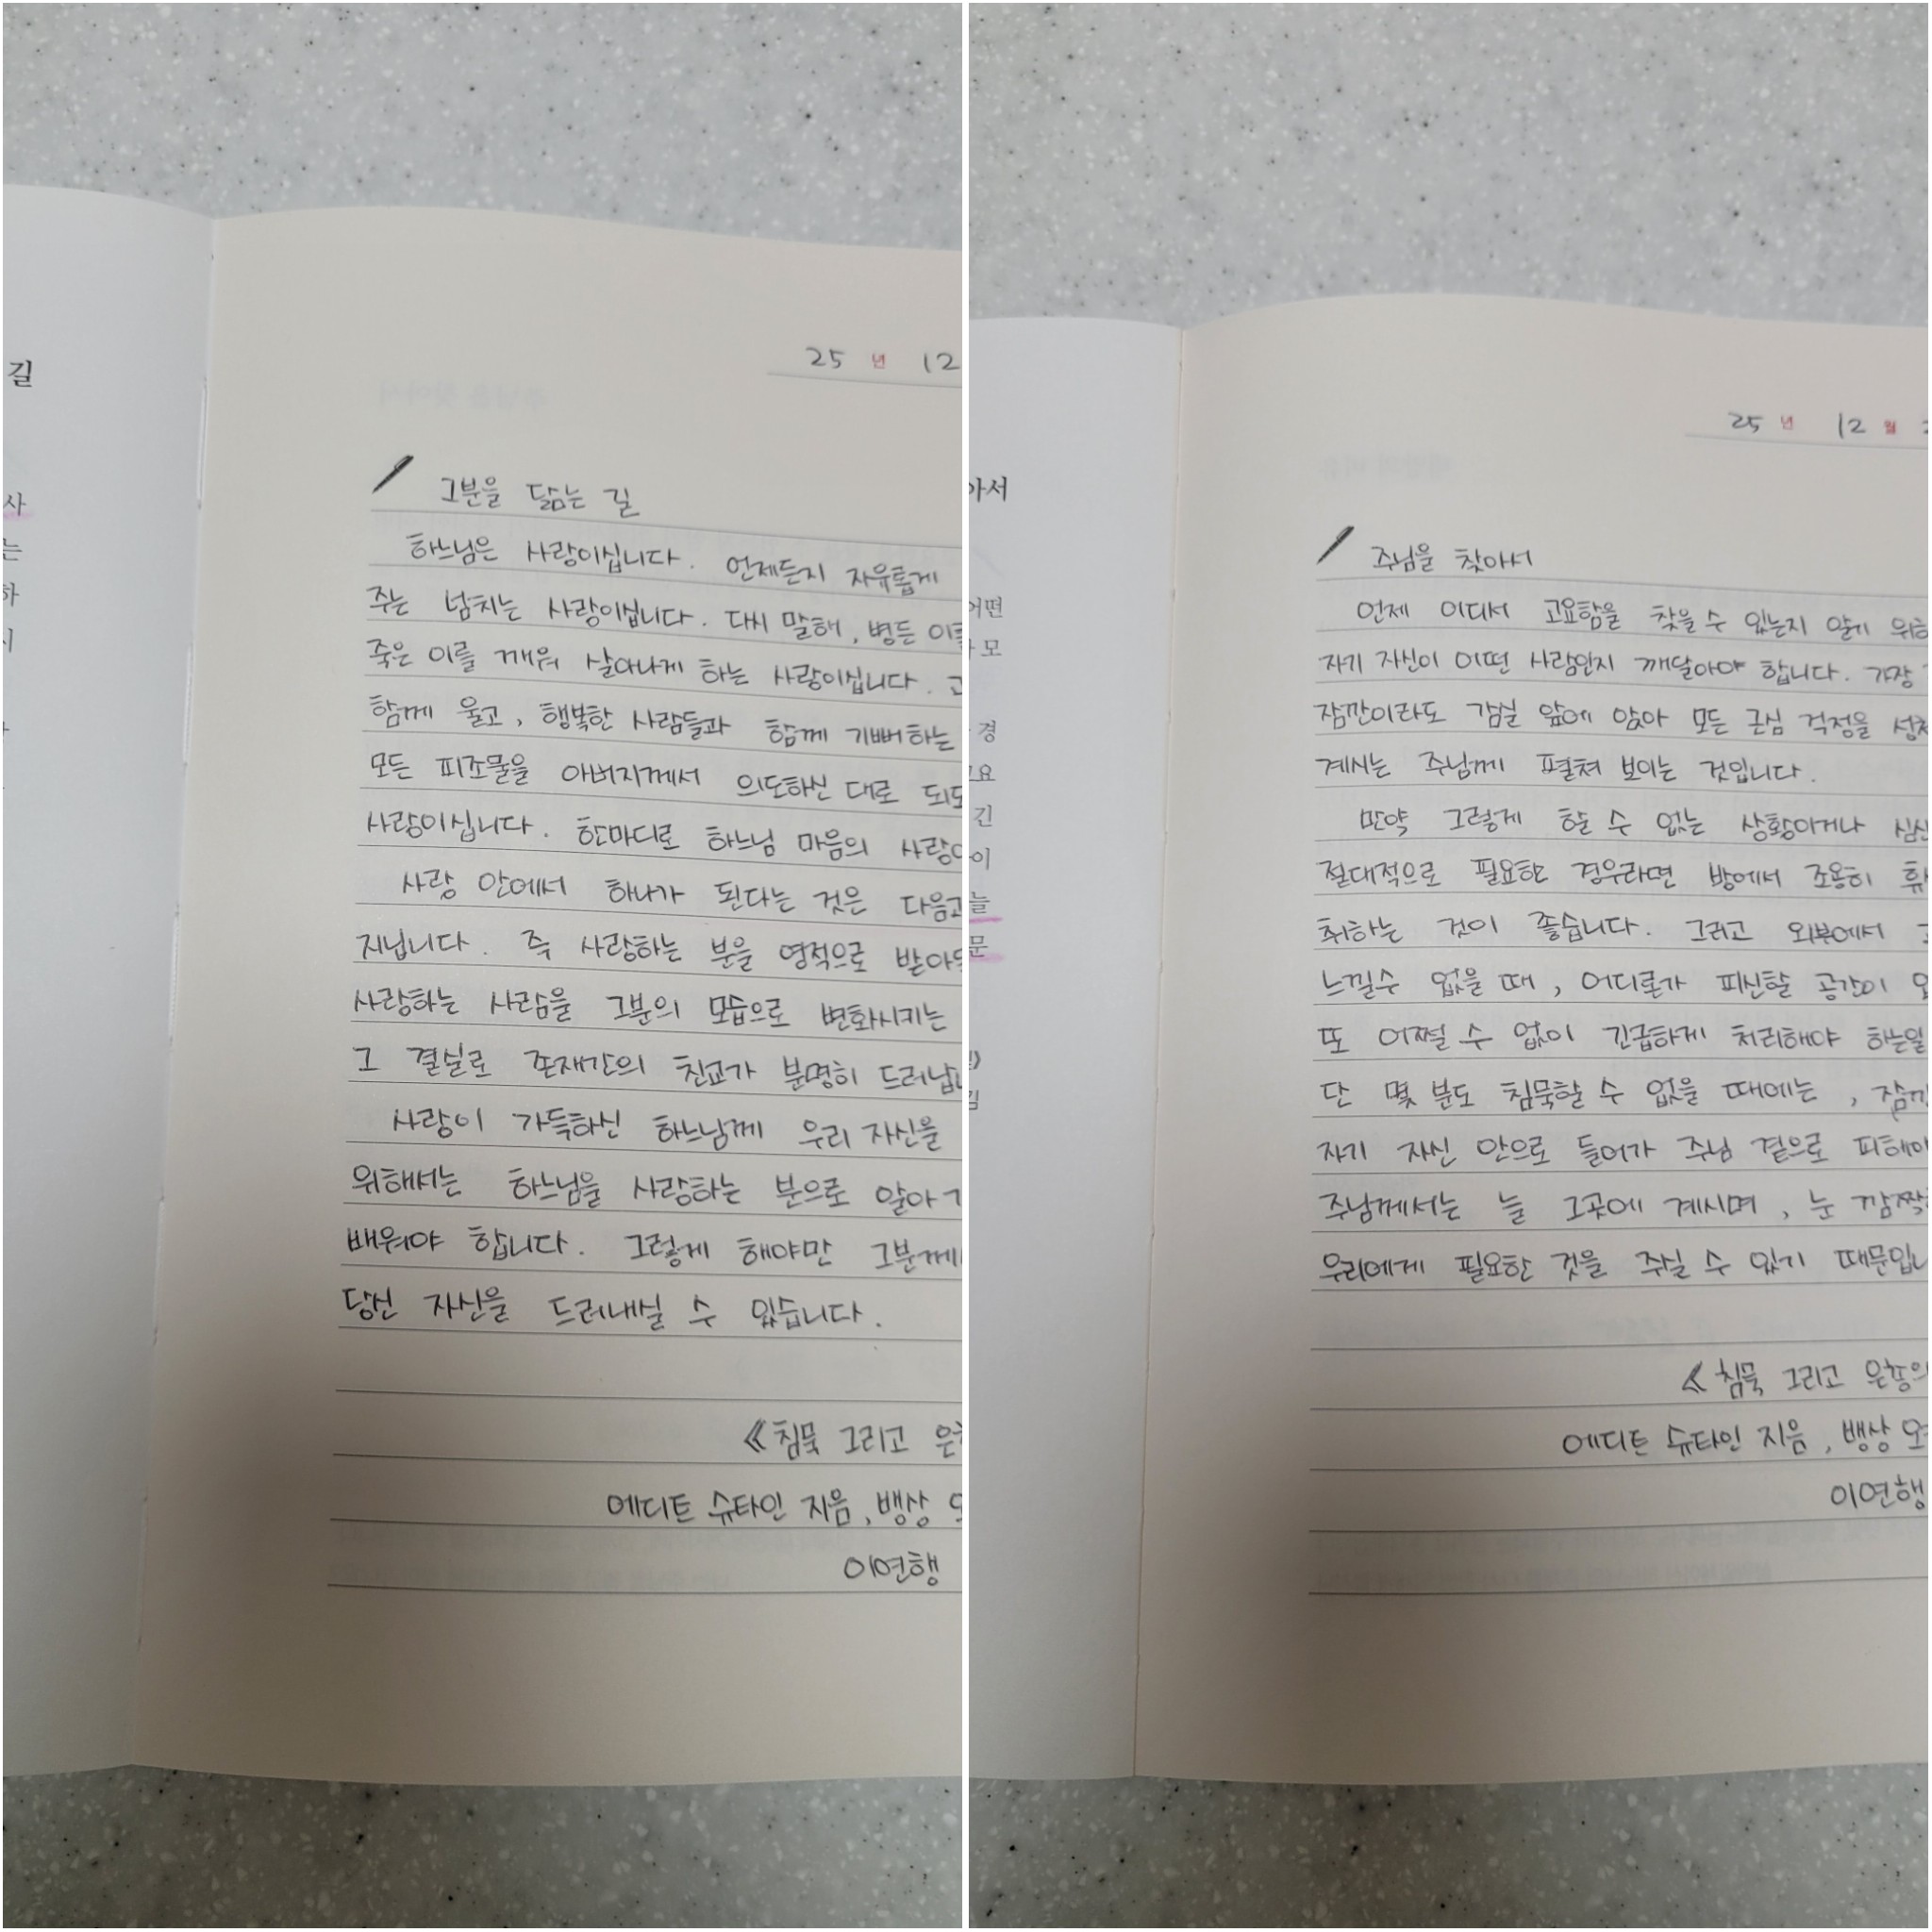 길
사
는
하
25 년 12
그분을 닮는 길
하느님은 사랑이십니다. 언제든지 자유롭게
주는 넘치는 사랑이십니다. 다시 말해, 병든 이를
죽은 이를 깨워 살아나게 하는 사랑이십니다.
함께 울고, 행복한 사람들과 함께 기뻐하는
모든 피조물을 아버지께서 의도하신 대로 되도
사랑이십니다. 한마디로 하느님 마음의 사랑
사랑 안에서 하나가 된다는 것은 다음과
지닙니다. 즉 사랑하는 분을 영적으로 받아
사랑하는 사람을 그분의 모습으로 변화시키는
그 결실로 존재간의 친교가 분명히 드러납
사랑이 가득하신 하느님께 우리 자신을
위해서는 하느님을 사랑하는 분으로 알아
배워야 합니다. 그렇게 해야만 그분께
당신 자신을 드러내실 수 있습니다.
《침묵 그리고 은
에디트 슈타인 지음, 뱅상
이연행
아서
어떤
모
경
요
긴
이
늘
문
25 년 12 월
주님을 찾아서
언제 어디서 고요함을 찾을 수 있는지 알기 위
자기 자신이 어떤 사람인지 깨달아야 합니다. 가장
잠깐이라도 감실 앞에 앉아 모든 근심 걱정을 성
계시는 주님께 펼쳐 보이는 것입니다.
만약 그렇게 할 수 없는 상황이거나 심신
절대적으로 필요한 경우라면 방에서 조용히 휴
취하는 것이 좋습니다. 그리고 외부에서
느낄수 없을 때, 어디론가 피신할 공간이
또 어쩔 수 없이 긴급하게 처리해야 하는일
단 몇 분도 침묵할 수 없을 때에는, 잠까
자기 자신 안으로 들어가 주님 곁으로 피해야
주님께서는 늘 그곳에 계시며, 눈 깜짝
우리에게 필요한 것을 주실 수 있기 때문입니
《침묵 그리고 은총의
에디트 슈타인 지음, 뱅상 오
이연행